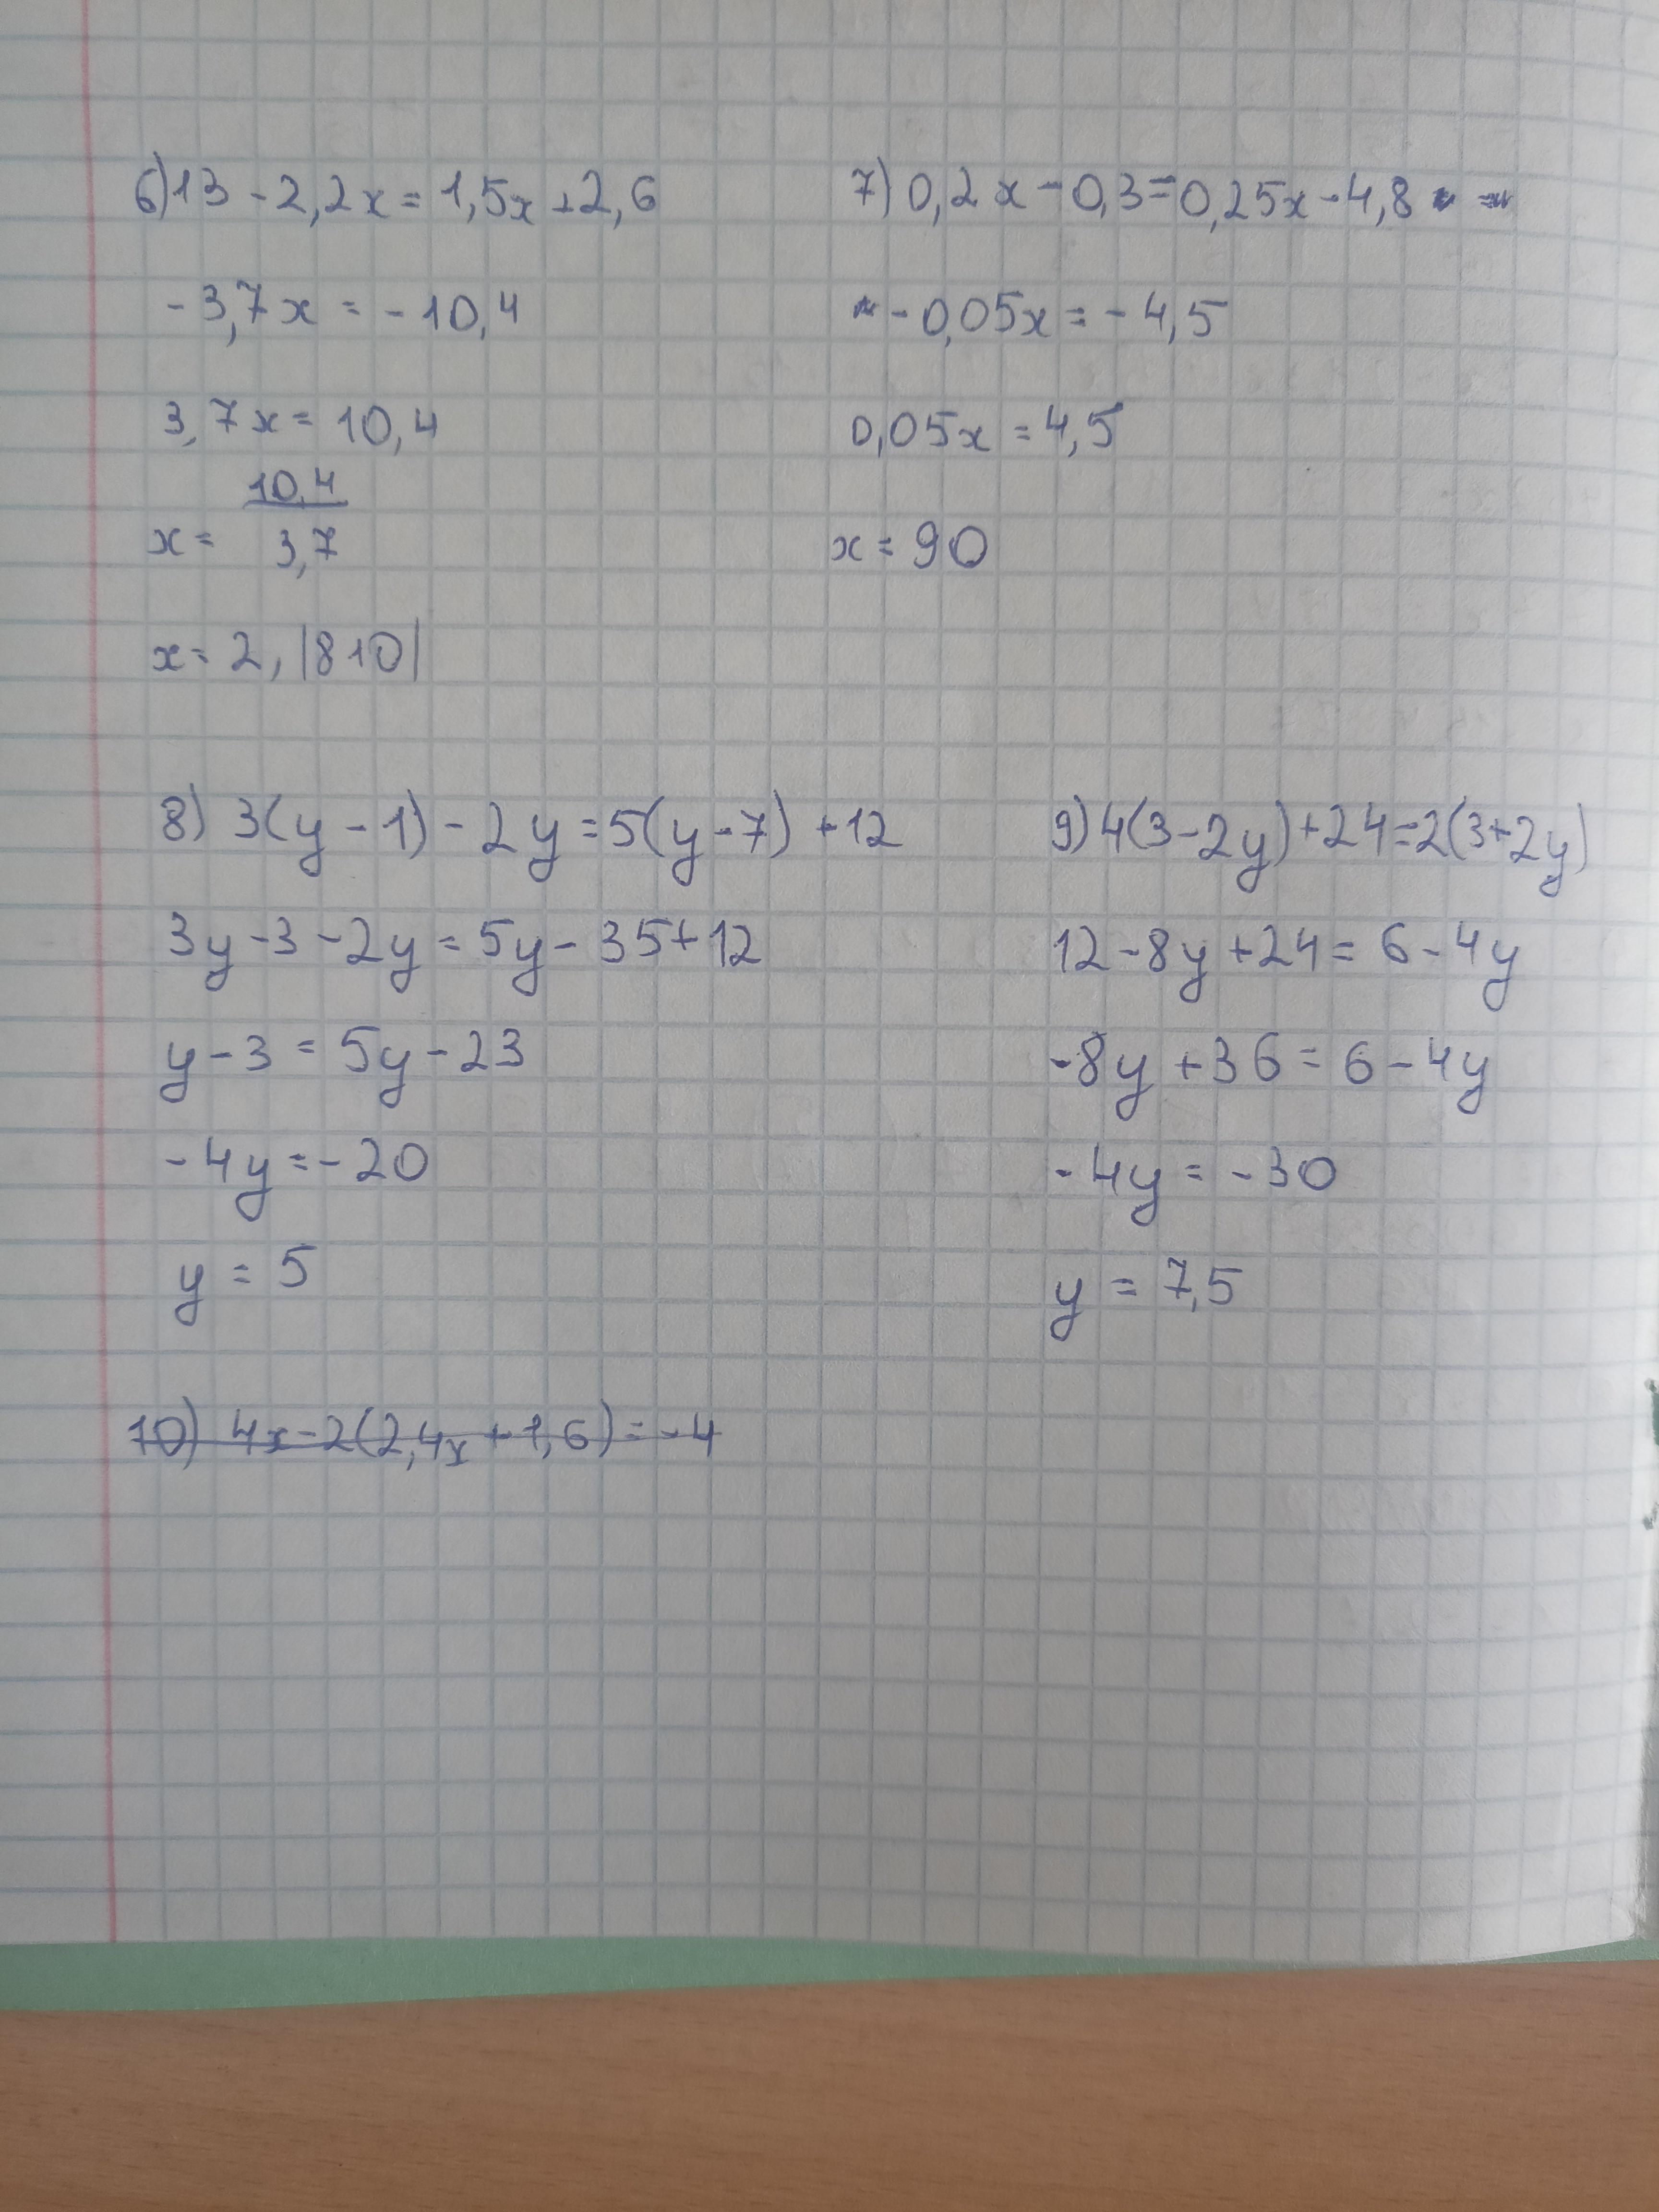 6) 13 - 2,2x = 1,5x + 2,6
-3,7x = -10,4
3,7x = 10,4
x = 10,4/3,7
x = 2,|810|
7) 0,2x - 0,3 = 0,25x - 4,8
-0,05x = -4,5
0,05x = 4,5
x = 90
8) 3(y - 1) - 2y = 5(y - 7) + 12
3y - 3 - 2y = 5y - 35 + 12
y - 3 = 5y - 23
-4y = -20
y = 5
9) 4(3 - 2y) + 24 = 2(3 + 2y)
12 - 8y + 24 = 6 - 4y
-8y + 36 = 6 - 4y
-4y = -30
y = 7,5
10) 4x - 2(2,4x + 1,6) = -4